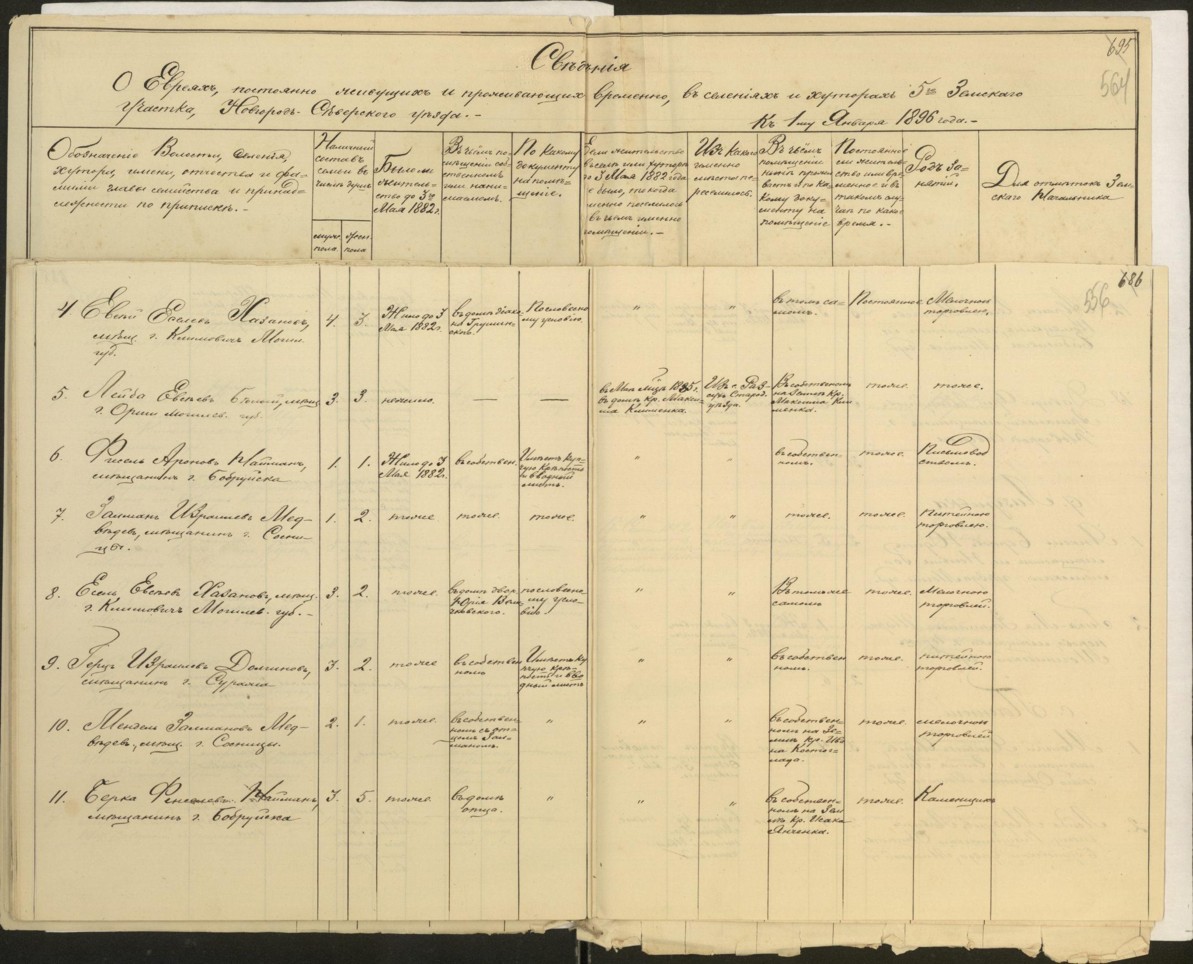 695
564
Свѣдѣнія
О Евреяхъ, постоянно живущихъ и проживающихъ временно, въ селеніяхъ и хуторахъ 5го Земскаго
участка, Новгородъ-Сѣверского уѣзда.-
Къ 1му Января 1896 года.-
Обозначеніе Волости, селенія,
хутора, имени, отчества и фа-
миліи главы семейства и принад-
лежности по припискѣ.-
Наличный
составъ
семьи
число душъ
мужс.
пола
женс.
пола
Былъ ли
житель-
ство до 3го
Мая 1882 г.
Въ чьёмъ по-
мѣщеніи соб-
ственномъ
или нани-
маемомъ.
По какому
документу
на помѣ-
щеніе.
Если жительство
въ селѣ или хуторѣ
до 3 Мая 1882 года
не было, то когда
именно поселился
въ чьемъ именно
помѣщеніи.-
Изъ какого
именно
мѣста пе-
реселился.
Въ чьёмъ
помѣщеніи
нынѣ прожи-
ваетъ и по ка-
кому доку-
менту на
помѣщеніе
Постоянное
ли житель-
ство или вре-
менное и въ
такомъ слу-
чаѣ по како
время.-
Родъ за-
нятій.
Для отмѣтокъ Зем-
скаго Начальника
686
556
4
Евсей Еселевъ Хазановъ,
мѣщ. г. Климовичъ Могил.
губ.
4. 3.
Жилъ до 3
Мая 1882 г.
въ домѣ
По словесно-
му условію.
"
"
въ томъ са-
момъ.
Постоянное
Мелочной
торговлею.
5.
Лейба Евсеевъ мѣщ.
г. Орши могилев. губ.
3. 3.
нежилъ.
—
—
въ Маѣ мѣс. 1885 г.
въ домѣ кр. Макси-
ма Клименка.
Изъ с.
Старод.
уѣзда.
Въ собственномъ
на землѣ кр.
Максима Кли-
менка.
тоже.
тоже.
6.
Ароновъ Найманъ,
мѣщанинъ г. Бобруйска
1. 1.
Жилъ до 3
Мая 1882 г.
въ собствен.
Имѣетъ куп-
чую крѣпость
и вводный
листъ.
"
"
въ собствен-
номъ.
тоже.
Письмовод
ствомъ.
7.
Залманъ Израилевъ Мед-
вѣдевъ, мѣщанинъ г. Сосни-
цы.
1. 2.
тоже
тоже.
тоже.
"
"
тоже.
тоже.
Питейною
торговлею.
8.
Есель Евсеевъ Хазановъ, мѣщ.
г. Климовичъ Могилев. губ.-
3. 2.
тоже.
въ домѣ двор.
Юрія
по словесно-
му усло-
вію.
"
"
Въ томъ же
самомъ
тоже.
Мелочною
торговлей.
9.
Герцъ Израилевъ
мѣщанинъ г. Суража
3. 2.
тоже
въ собствен
номъ
Имѣетъ ку-
пчую крѣ-
пость и вво-
дный листъ
"
"
въ собствен
номъ.
тоже.
питейною
торговлей.
10.
Мендель Залмановъ Мед-
вѣдевъ, мѣщ. г. Сосницы.
2. 1.
тоже.
въ собствен-
номъ съ от-
цомъ Зал-
маномъ.
"
"
"
въ собствен-
номъ на зе-
млѣ кр. Ива
на Костог-
лода.
тоже.
мелочной
торговлей
11.
Берка Найманъ,
мѣщанинъ г. Бобруйска
3. 5.
тоже.
въ домѣ
отца.
"
"
"
въ собствен-
номъ на зем-
лѣ кр. Исака
Янченка.
тоже.
Каменщикъ